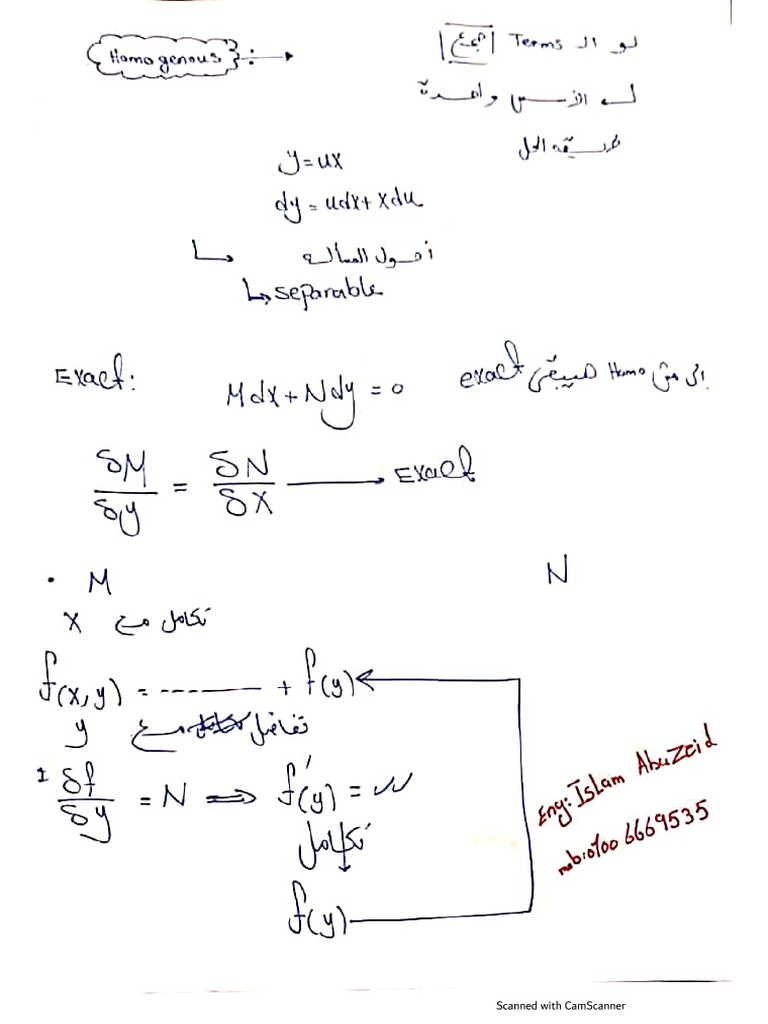 Homogenous : → لو الـ Terms جميع
لـه الأسس واحدة
طريقه الحل
y = ux
dy = udx + xdu
↳ أحول المسالة
↳ separable
Exact: Mdx + Ndy = 0 الى مش Homo هيبقى exact
δM/δy = δN/δx → Exact
• M N
تكامل مع x
f(x,y) = ------- + f(y)
تفاضل مع y
δf/δy = N ⇒ f'(y) = 
تكامل
f(y)
Eng: Islam Abuzeid
mob: 0100 6669535
Scanned with CamScanner